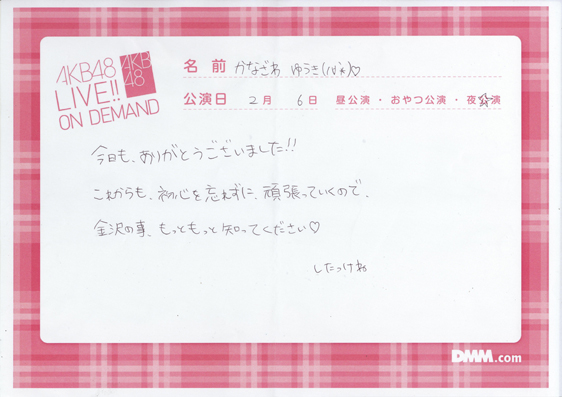 AKB48
LIVE!!
ON DEMAND
AKB
48
名前 かなざわ ゆうき
公演日 2月 6日 昼公演・おやつ公演・夜公演
今日も、ありがとうございました!!
これからも、初心を忘れずに、頑張っていくので、
金沢の事、もっともっと知ってください♡
したっけね
DMM.com